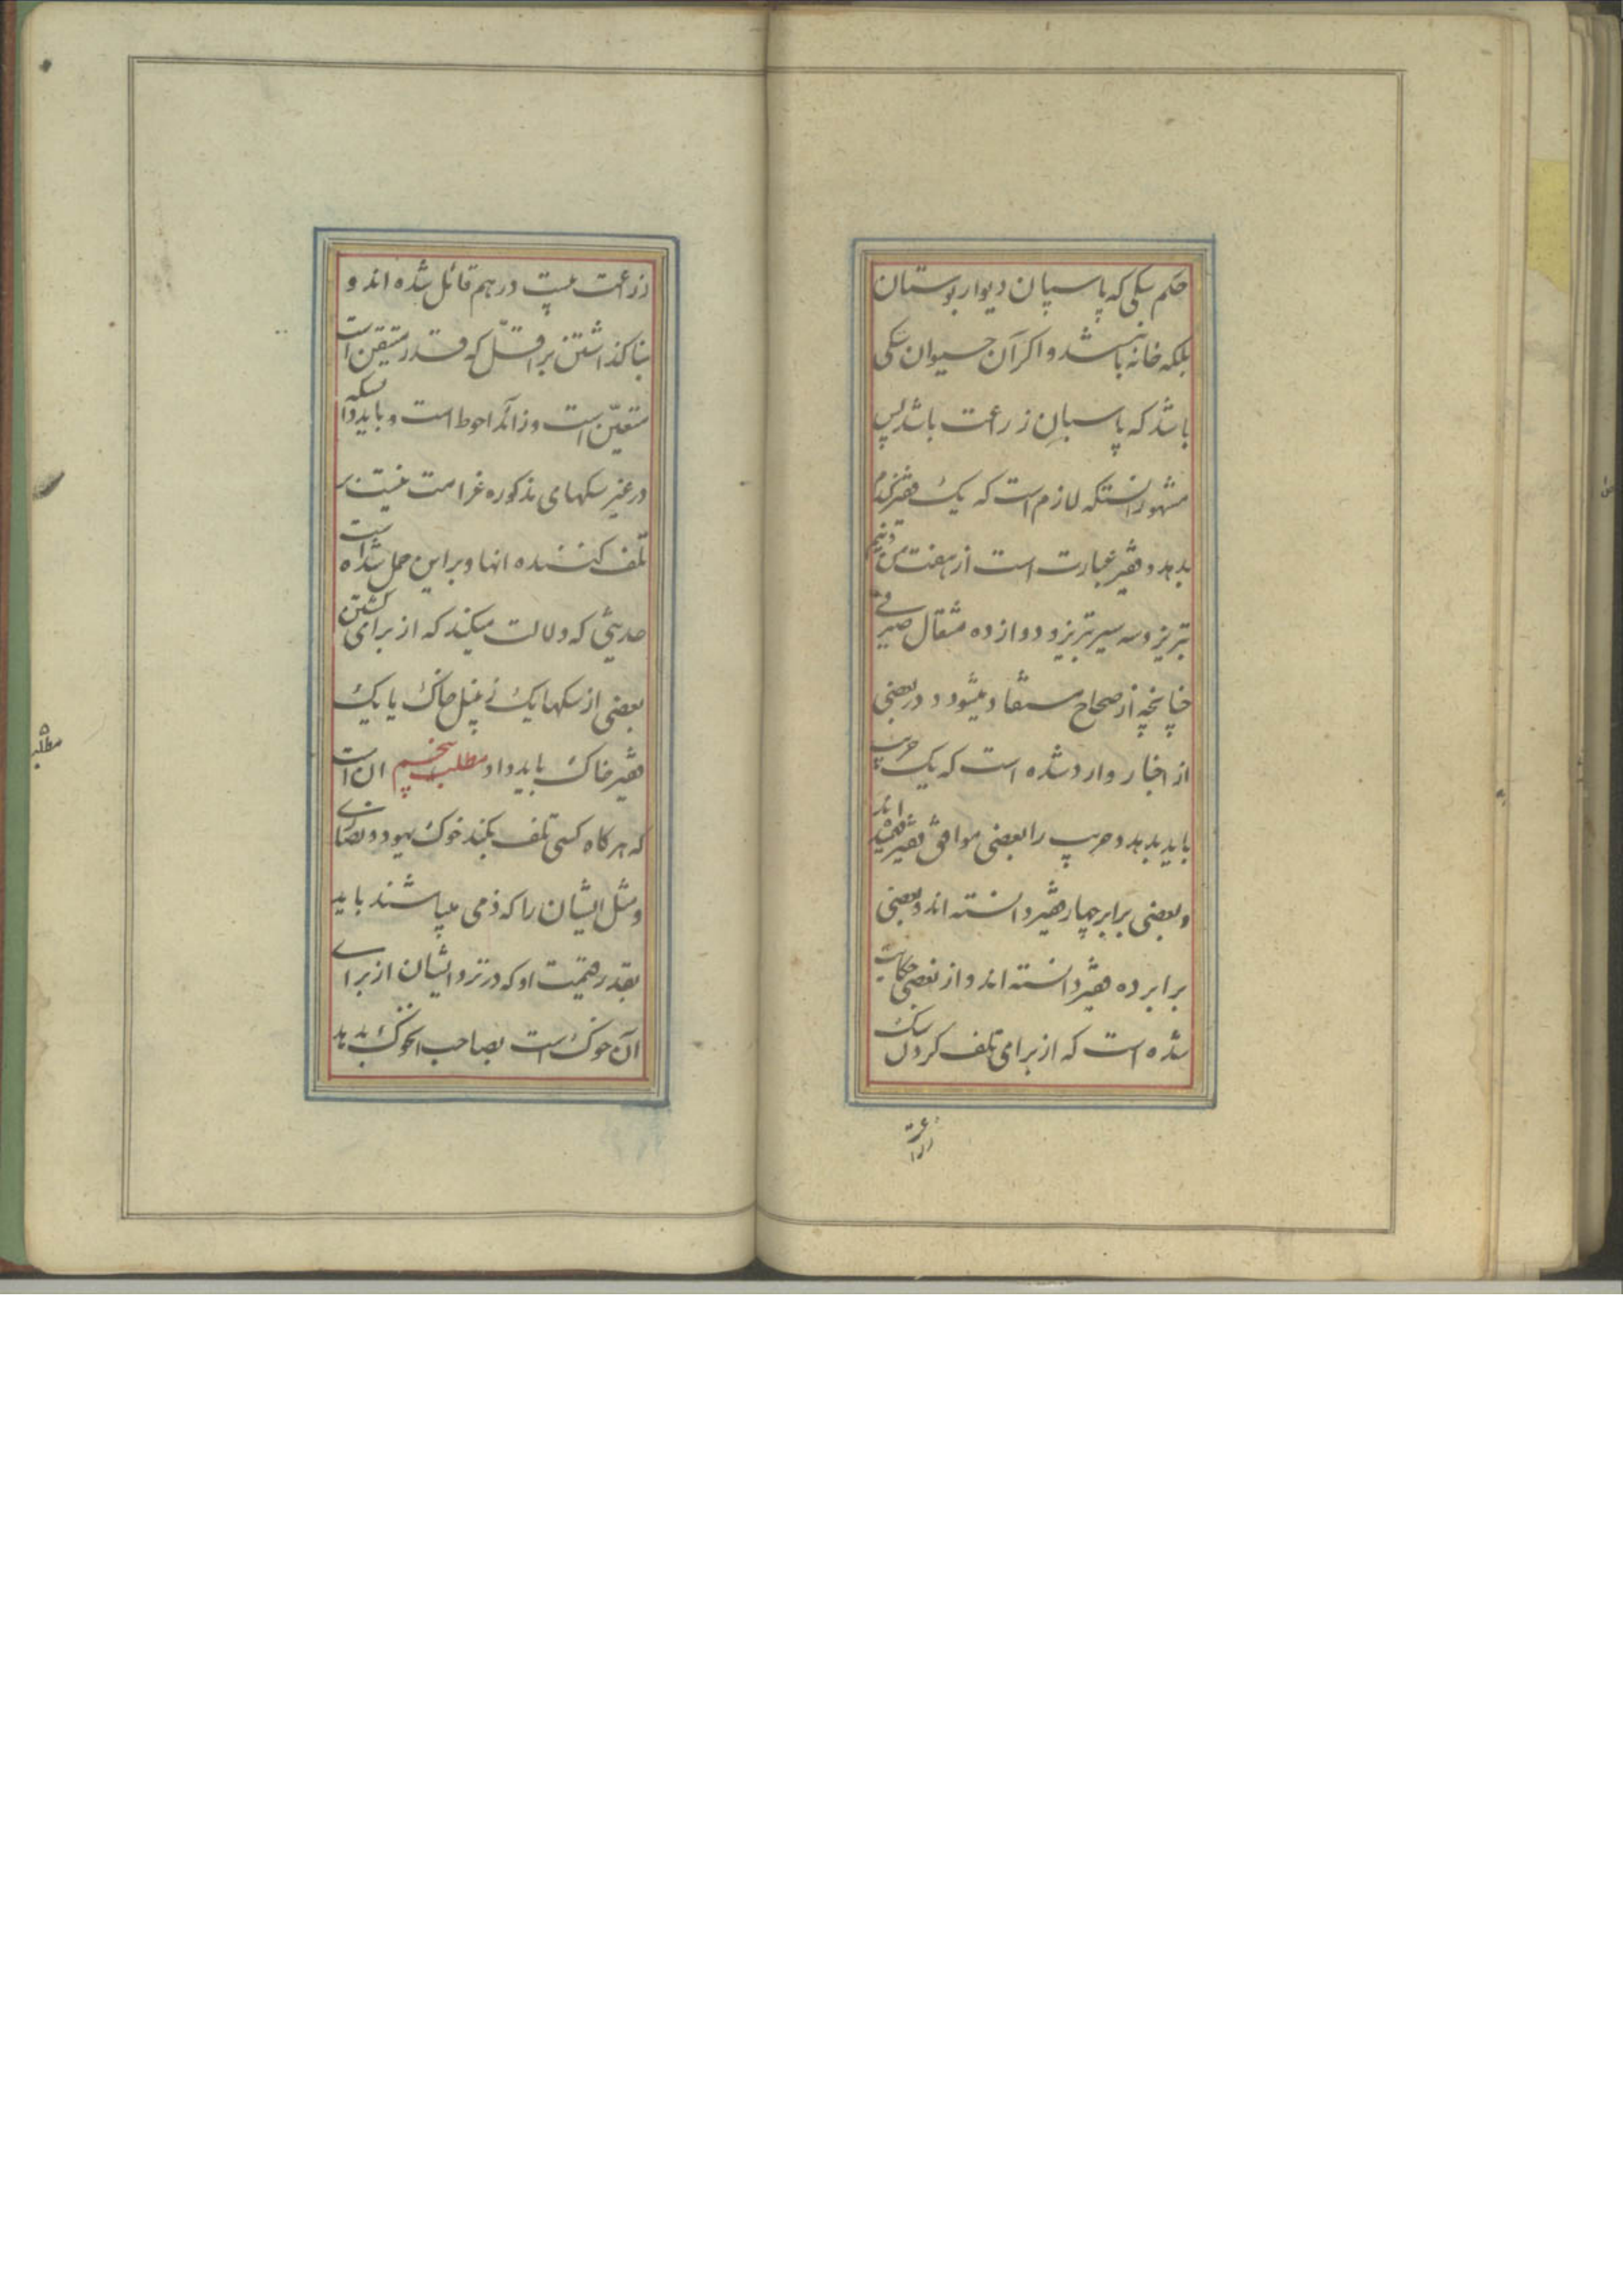 حکم سکی که پاسپان دیوار بوستان
بلکه خانه باشد و اکر آن حیوان سکی
باشد که پاسبان زراعت باشد پس
مشهور انستکه لازم است که یک قفیز کندم
بدهد و قفیز عبارت است از هفت من و نیم
تبریز و سه سیر تبریز و دوازده مثقال صیرفے
چنانچه از صحاح مستفاد میشود و در بعضی
از اخبار وارد شده است که یک جریب
باید بدهد و جریب را بعضی موافق قفیز فهمیده اند
و بعضی برابر چهار قفیز دانسته اند و بعضی
برابر ده قفیز دانسته اند و از بعضی حکایت
شده است که از برای تلف کردن سک
زراعت
زراعت بیست درهم قائل شده اند و
بنا کذاشتن بر اقلّ که قدر متیقن است
متعیّن است و زائد احوط است و باید دانسکه
در غیر سکهای مذکوره غرامت نیست بر
تلف کننده انها و بر این حمل شده است
حدیثی که دلالت میکند که از برای کشتن
بعضی از سکها یک زنبیل خاک یا یک
قفیز خاک باید داد مطلب پنجم ان است
که هرکاه کسی تلف بکند خوک یهود و نصارے
و مثل ایشان را که ذمی میباشند باید
بقدر قیمت او که در نزد ایشان از براے
آن خوک است بصاحب انخوک بدهد
مطلب ۵